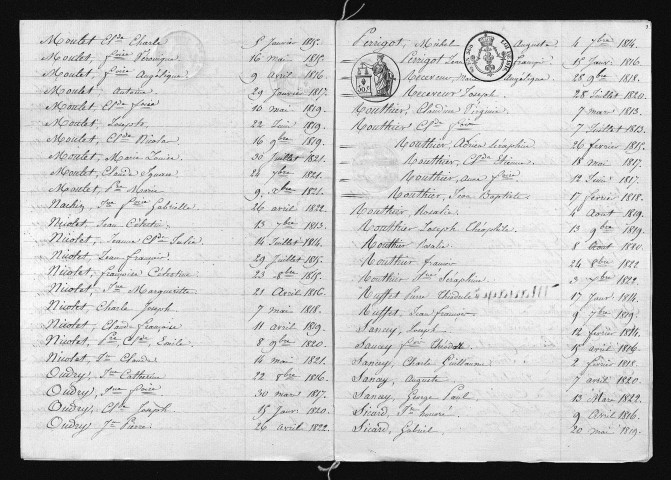 Moulet, Cl.de Charle 5 Janvier 1815.
Moulet, f.coise Véronique 16 mai 1815.
Moulet, f.coise Angélique 9 avril 1816.
Moulet Antoine 29 Janvier 1817.
Moulet Cl.de f.cois 10 mai 1819.
Moulet, Joseph 22 Juin 1819.
Moulet, Cl.de Nicolas 16 9bre 1819.
Moulet, Marie Louise 30 Juillet 1821.
Moulet, Claude Ignace 24 7bre 1821.
Moulet, Marie 9, Xbre 1821.
Gabrielle 26 avril 1822.
Nicolet, Jean Célestin 13 7bre 1813.
Nicolet, Jeanne Cl.de Julie 14 Juillet 1814.
Nicolet, Jean François 29 Juillet 1815.
Nicolet, Françoise Célestine 23 8bre 1815.
Nicolet, Marguerite 21 Avril 1816.
Nicolet, Charle Joseph 7 mai 1818.
Nicolet, Claude Françoise 11 avril 1819.
Nicolet, Emile 8 9bre 1820.
Nicolet, Claude 14 mai 1821.
Oudry, Catherine 22 8bre 1816.
Oudry, 30 mars 1817.
Oudry, Cl.de Joseph 15 Janv. 1820.
Oudry, Pierre 26 avril 1822.
Perrigot, Michel Auguste 4 7bre 1814.
Perrigot Jean François 15 Janv. 1816.
Receveur, Angélique 28 9bre 1818.
Receveur Joseph 28 Juillet 1820.
Routhier, Claudine Virginie 7 mars 1813.
Routhier Cl.de 7 Juillet 1813.
Routhier, Adrien Séraphin 26 février 1815.
Routhier, Cl.de Etienne 18 mai 1817.
Routhier, Anne f.coise 12 Juin 1817.
Routhier, Jean Baptiste 17 février 1818.
Routhier, Rosalie 4 Aout 1819.
Routhier Joseph Théophile 13 9bre 1819.
Routhier Rosalie 8 Aout 1820.
Routhier François 24 8bre 1822.
Routhier Séraphine 3 Xbre 1822.
Ruffet 17 Janv. 1814.
Ruffet, Jean François 9 1819.
Sancey, Joseph 12 février 1814.
Sancey 15 avril 1816.
Sancey, Charle Guillaume 2 février 1818.
Sancey, Auguste 7 avril 1820.
Sancey, George Paul 13 Mars 1822.
Sicard, honoré 9 Avril 1816.
Sicard, Gabriel 20 mai 1819.